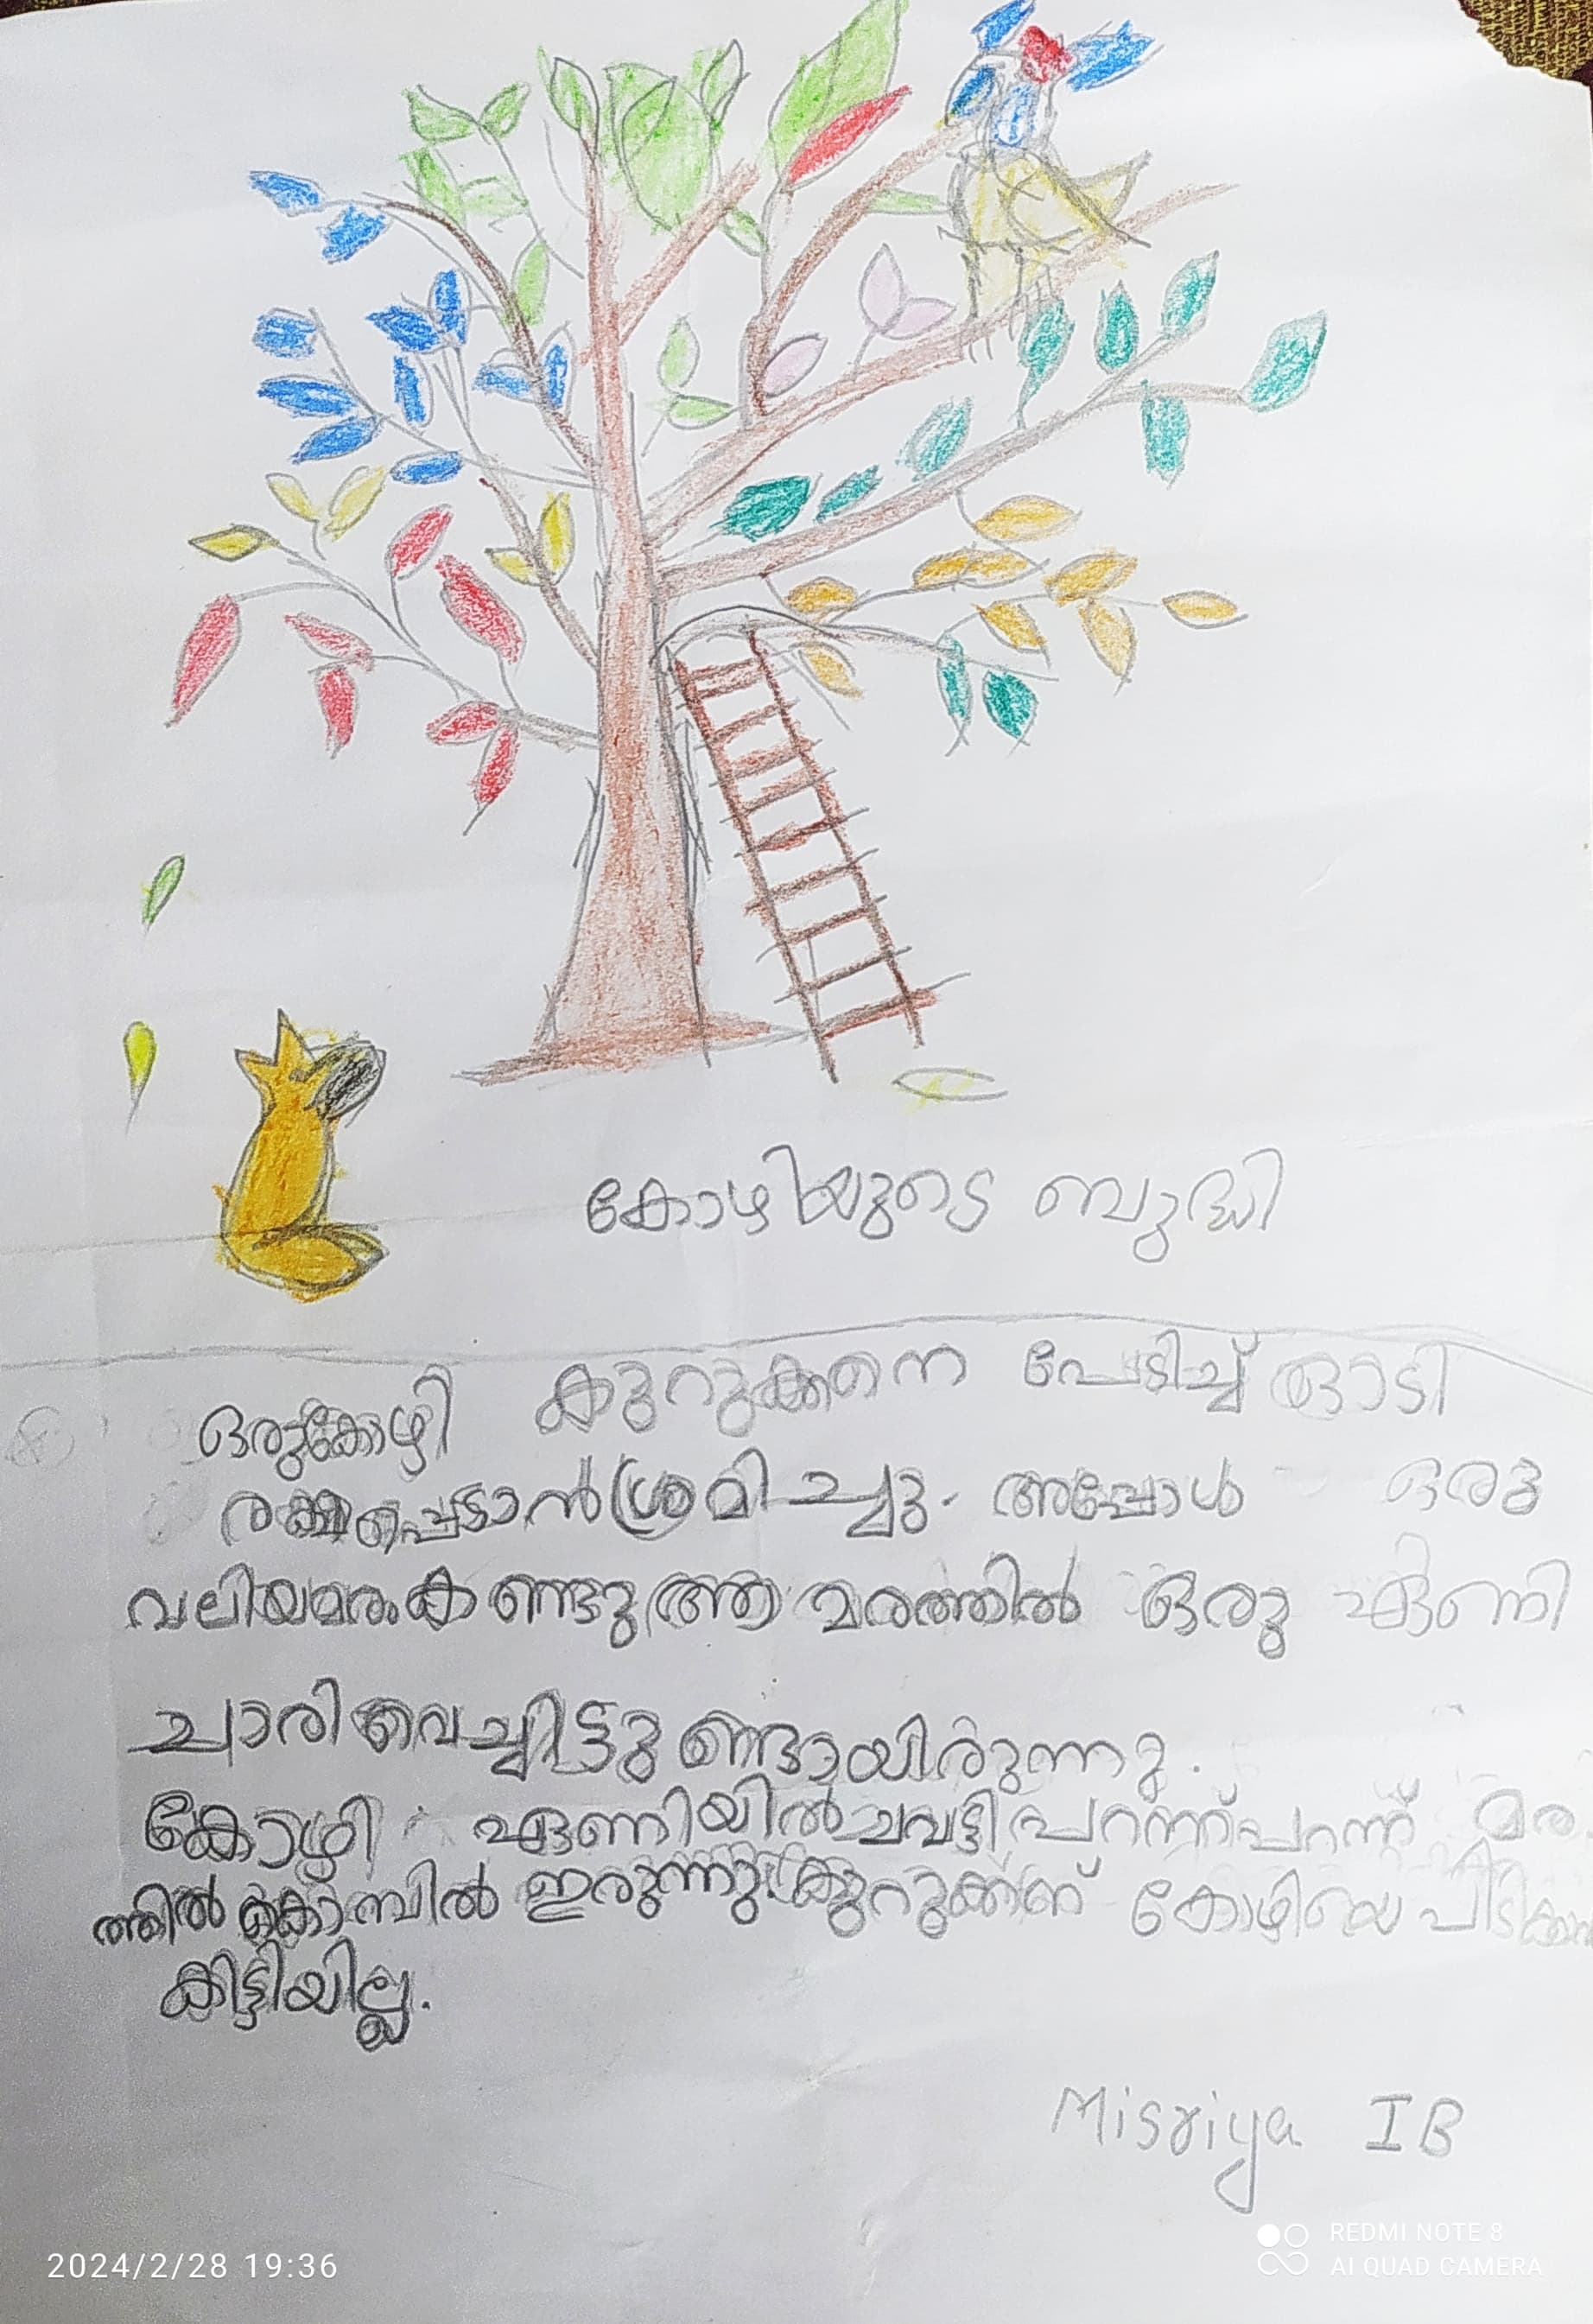 കോഴിയുടെ ബുദ്ധി
ഒരുകോഴി കുറുക്കനെ പേടിച്ച് ഓടി
രക്ഷപ്പെടാൻ ശ്രമിച്ചു. അപ്പോൾ ഒരു
വലിയമരംകണ്ടു ആ മരത്തിൽ ഒരു ഏണി
ചാരി വെച്ചിട്ടുണ്ടായിരുന്നു.
കോഴി ഏണിയിൽ ചവട്ടി പറന്ന് പറന്ന് മര
ത്തിൽ കൊമ്പിൽ ഇരുന്നു. കുറുക്കന് കോഴിയെ പിടിക്കാൻ
കിട്ടിയില്ല.
Misriya IB
2024/2/28 19:36
REDMI NOTE 8
AI QUAD CAMERA